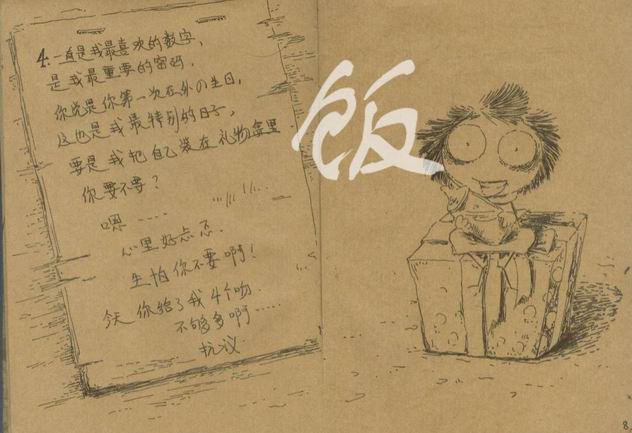 4.一直是我最喜欢的数字,
是我最重要的密码.
你说是你第一次在外の生日,
这也是我最特别的日子.
要是我把自己装在礼物盒里
你要不要?
嗯......
心里好忐忑.
生怕你不要啊!
今天你给了我4个吻.
不够多啊......
抗议
饭
8.